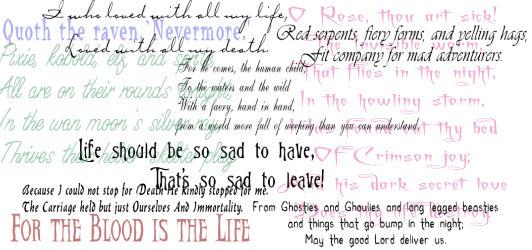 I who loved with all my life,
Loved with all my death
Quoth the raven, Nevermore.
O Rose, thou art sick!
The invisible worm,
That flies in the night,
In the howling storm,
thy bed
Of Crimson joy;
his dark secret love
Does thy life destroy
Red serpents, fiery forms, and yelling hags,
Fit company for mad adventurers.
Pixie, kobold, elf, and sprite,
All are on their rounds tonight,
In the wan moon's silver ray,
Thrives their
For he comes, the human child,
To the waters and the wild
With a faery, hand in hand,
from a world more full of weeping than you can understand.
Life should be so sad to have,
That's so sad to leave!
Because I could not stop for Death He kindly stopped for me.
The Carriage held but just Ourselves And Immortality.
From Ghosties and Ghoulies and long legged beasties
and things that go bump in the night;
May the good Lord deliver us.
For the Blood is the Life